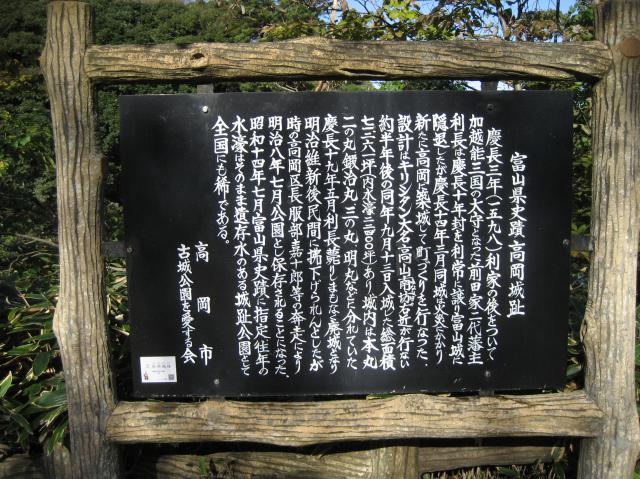 富山県史蹟高岡城趾
慶長三年(一五九八)利家の後をついで
加越能三国の大守となった前田家二代藩主
利長は慶長十年封を利常に譲り富山城に
隠退したが慶長十四年三月同城火災にかかり
新たに高岡に築城して町づくりを行なった、
設計はキリシタン大名高山南坊右近が行ない
約半年後の同年九月十三日入城した総面積
七三六一坪(内水濠二三四〇〇坪)あり、城内は本丸
二の丸鍛冶丸三の丸 明丸などに分れていた
慶長十九年五月利長薨りまもなく廃城となり
明治維新後民間に払下げられんとしたが
時の高岡区長服部嘉十郎等の奔走により
明治八年七月公園として保存されることになった、
昭和四十年七月富山県史跡に指定往年の
水濠はそのまま遺存水のある城趾公園として
全国にも稀である。
高岡市
古城公園を愛する会